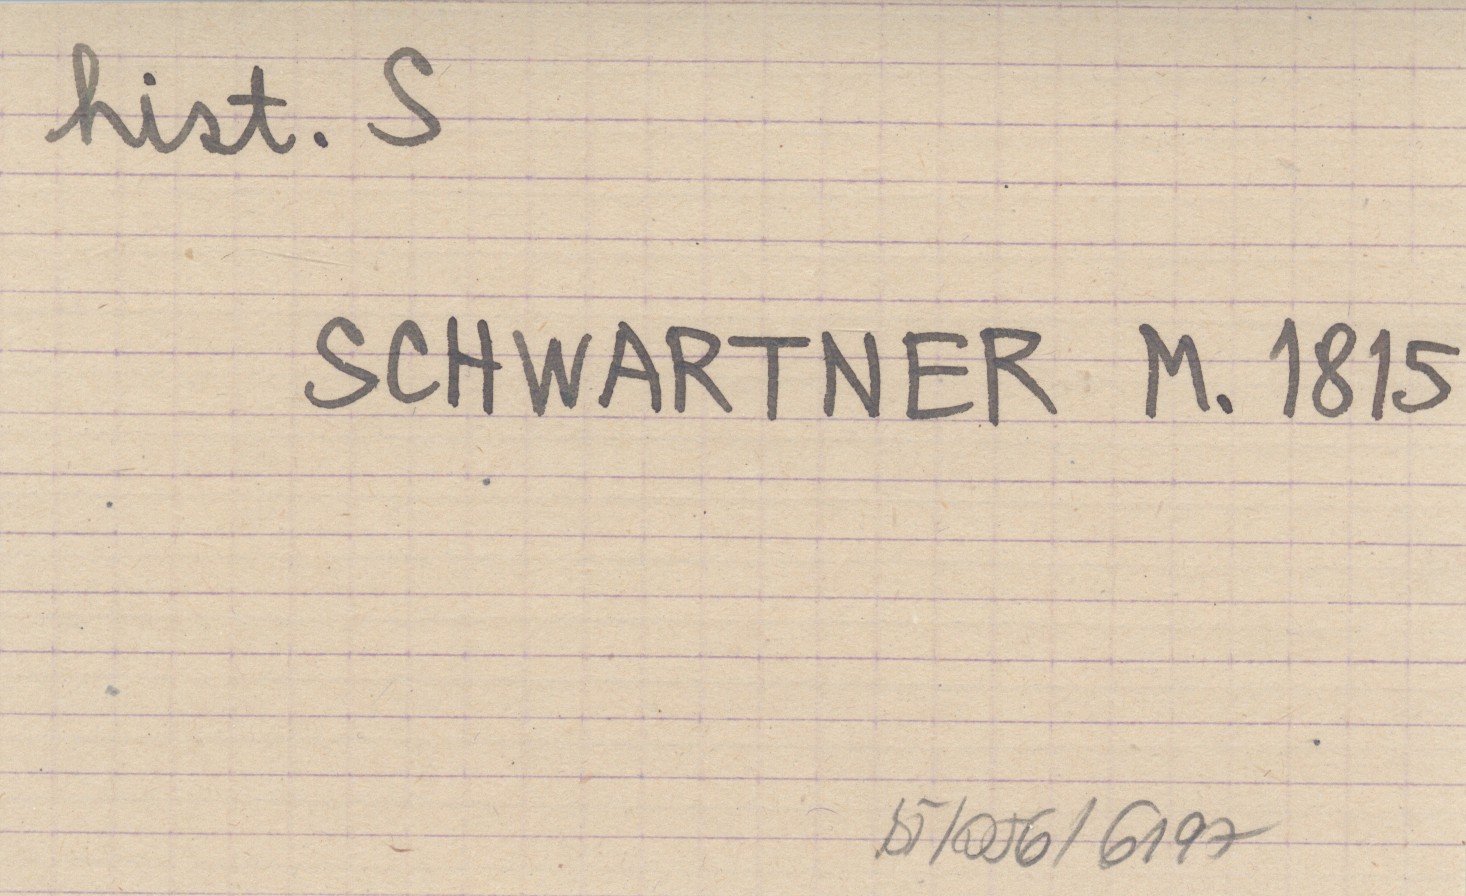 hist. S
SCHWARTNER M. 1815
6197